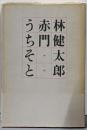 林健太郎
赤門
うちそと